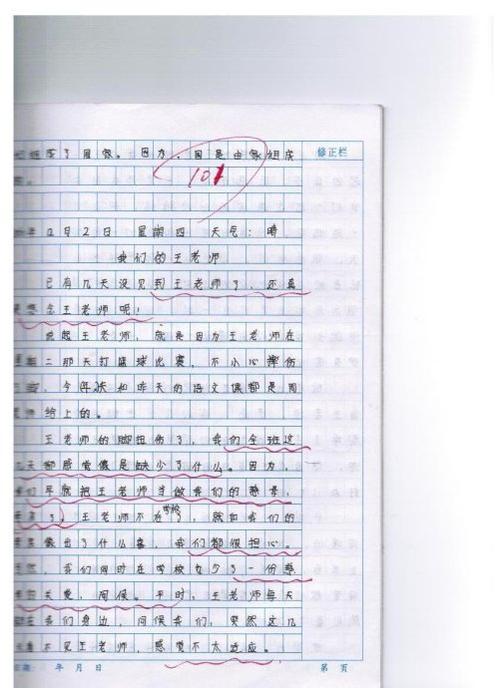 了屋像。因为,因是由像组房 修正栏
10
月2日 星期四 天气:晴
我们的王老师
已有几天没见到王老师了,还真
想念王老师呢!
说起王老师,就是因为王老师在
二那天打篮球比赛,不小心摔伤
今 天和昨天的语文课都是周
给上的。
王老师的脚扭伤了,我们全班这
几天都感觉像是缺少了什么。因为,
我们早就把王老师当做我们的
了,王老师不在学校了,就如我们的
像出了什么事,我们都很担心。
我们同时在学校也少了一份
关爱,问候。平时,王老师每天
在我们身边,问候我们,突然这几
不见王老师,感觉不太适应。
年 月 日 第 页